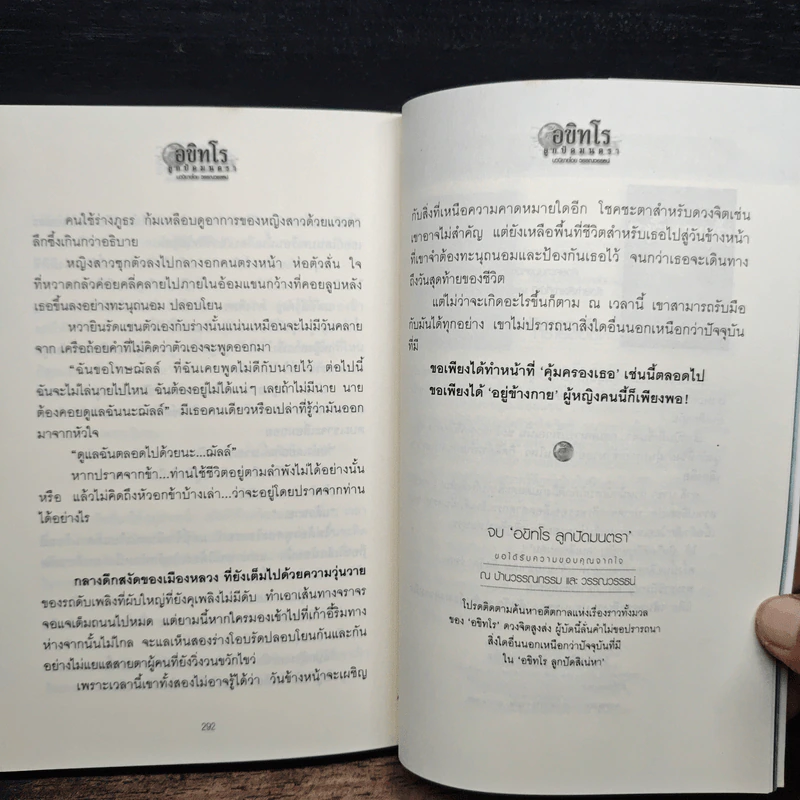 อขิทโร
ลูกปัดมนตรา
นวนิยายโดย วรรณวรรธน์
คนใช้ร่างภูธร ก้มเหลือบดูอาการของหญิงสาวด้วยแววตา
ลึกซึ้งเกินกว่าอธิบาย
หญิงสาวซุกตัวลงไปกลางอกคนตรงหน้า ห่อตัวสั่น ใจ
ที่หวาดกลัวค่อยคลี่คลายไปภายในอ้อมแขนกว้างที่คอยลูบหลัง
เธอขึ้นลงอย่างทะนุถนอม ปลอบโยน
หวายินรัดแขนตัวเองกับร่างนั้นแน่นเหมือนจะไม่มีวันคลาย
จาก เครือถ้อยคำที่ไม่คิดว่าตัวเองจะพูดออกมา
“ฉันขอโทษฌัลล์ ที่ฉันเคยพูดไม่ดีกับนายไว้ ต่อไปนี้
ฉันจะไม่ไล่นายไปไหน ฉันต้องอยู่ไม่ได้แน่ๆ เลยถ้าไม่มีนาย นาย
ต้องคอยดูแลฉันนะฌัลล์” มีเธอคนเดียวหรือเปล่าที่รู้ว่ามันออก
มาจากหัวใจ
“ดูแลฉันตลอดไปด้วยนะ...ฌัลล์”
หากปราศจากข้า...ท่านใช้ชีวิตอยู่ตามลำพังไม่ได้อย่างนั้น
หรือ แล้วไม่คิดถึงหัวอกข้าบ้างเล่า...ว่าจะอยู่โดยปราศจากท่าน
ได้อย่างไร
กลางดึกสงัดของเมืองหลวง ที่ยังเต็มไปด้วยความวุ่นวาย
ของรถดับเพลิงที่ผับใหญ่ที่ยังคุเพลิงไม่มีดับ ทำเอาเส้นทางจราจร
จอแจเต็มถนนไปหมด แต่ยามนี้หากใครมองเข้าไปที่เก้าอี้ริมทาง
ห่างจากนั้นไม่ไกล จะแลเห็นสองร่างโอบรัดปลอบโยนกันและกัน
อย่างไม่แยแสสายตาผู้คนที่ยังวิ่งวนขวักไขว่
เพราะเวลานี้เขาทั้งสองไม่อาจรู้ได้ว่า วันข้างหน้าจะเผชิญ
292
อขิทโร
ลูกปัดมนตรา
นวนิยายโดย วรรณวรรธน์
กับสิ่งที่เหนือความคาดหมายใดอีก โชคชะตาสำหรับดวงจิตเช่น
เขาอาจไม่สำคัญ แต่ยังเหลือพื้นที่ชีวิตสำหรับเธอไปสู่วันข้างหน้า
ที่เขาจำต้องทะนุถนอมและป้องกันเธอไว้ จนกว่าเธอจะเดินทาง
ถึงวันสุดท้ายของชีวิต
แต่ไม่ว่าจะเกิดอะไรขึ้นก็ตาม ณ เวลานี้ เขาสามารถรับมือ
กับมันได้ทุกอย่าง เขาไม่ปรารถนาสิ่งใดอื่นนอกเหนือกว่าปัจจุบัน
ที่มี
ขอเพียงได้ทำหน้าที่ ‘คุ้มครองเธอ’ เช่นนี้ตลอดไป
ขอเพียงได้ ‘อยู่ข้างกาย’ ผู้หญิงคนนี้ก็เพียงพอ!
จบ ‘อขิทโร ลูกปัดมนตรา’
ขอได้รับความขอบคุณจากใจ
ณ บ้านวรรณกรรม และ วรรณวรรธน์
โปรดติดตามค้นหาอดีตกาลแห่งเรื่องราวทั้งมวล
ของ ‘อขิทโร’ ดวงจิตสูงส่ง ผู้บัดนี้ลั่นคำไม่ขอปรารถนา
สิ่งใดอื่นนอกเหนือกว่าปัจจุบันที่มี
ใน ‘อขิทโร ลูกปัดสิเน่หา’